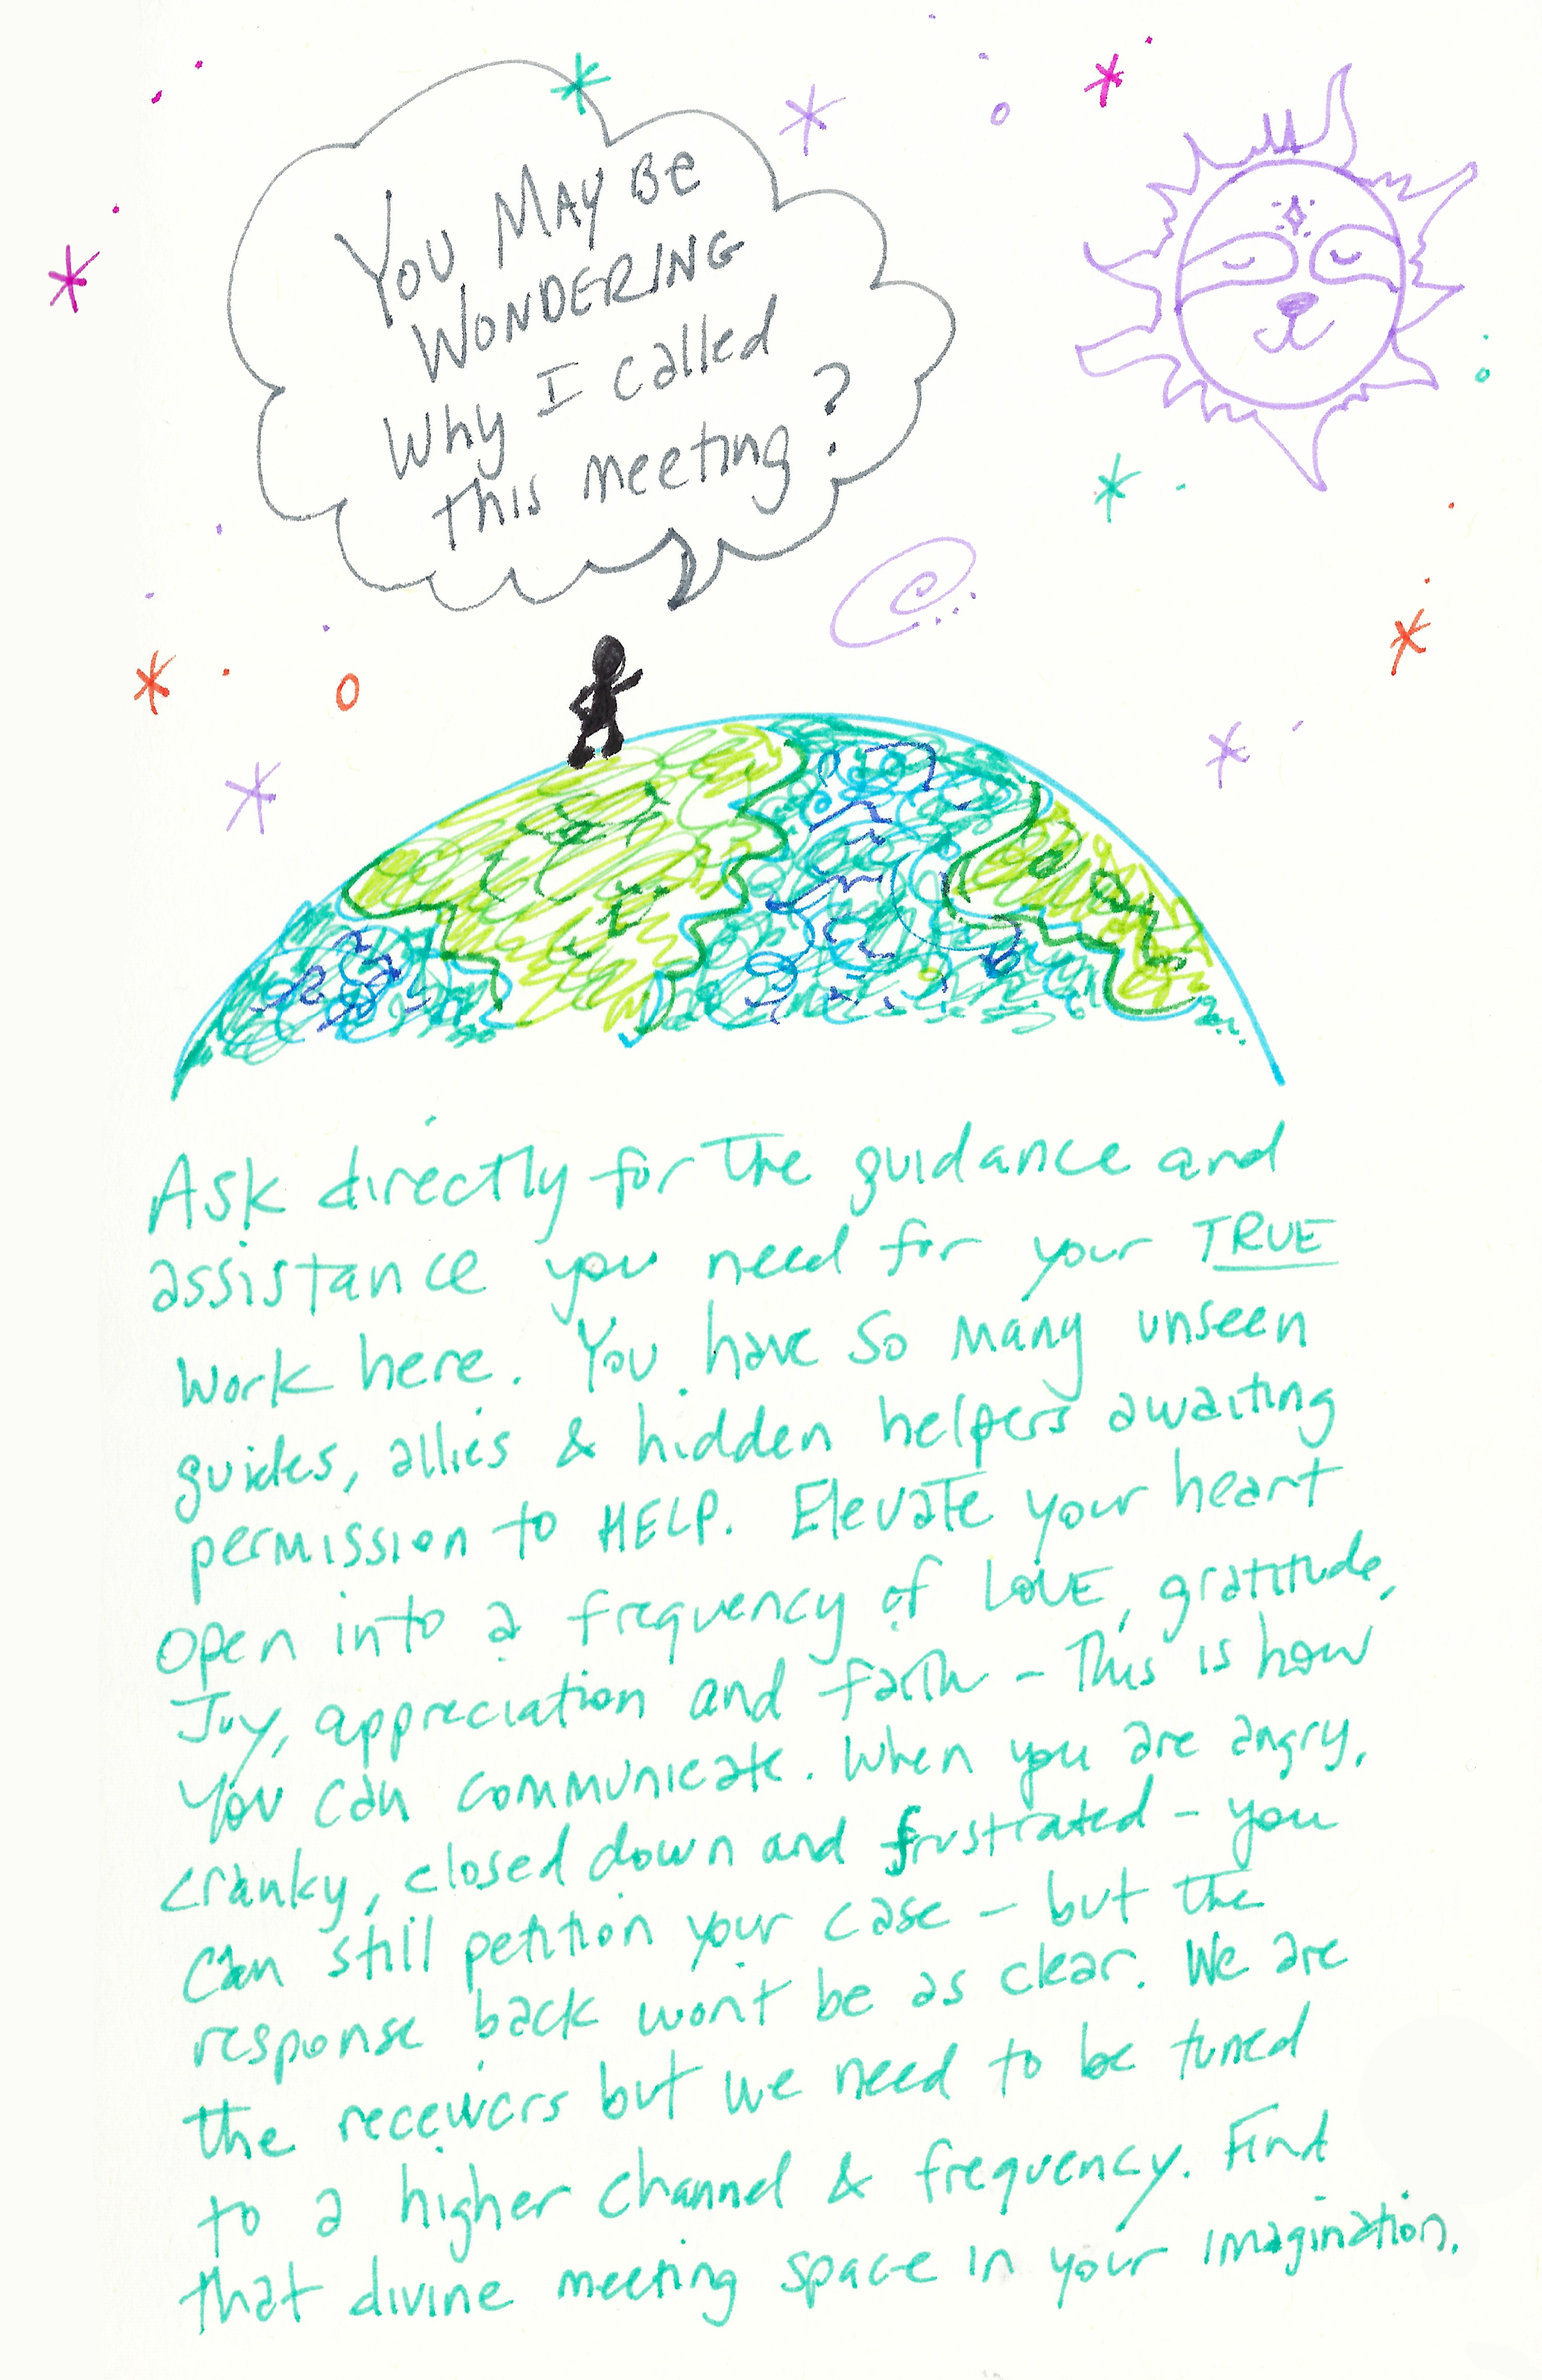 You May Be
Wondering
Why I called
this meeting?
Ask directly for the guidance and
assistance you need for your TRUE
work here. You have so many unseen
guides, allies & hidden helpers awaiting
permission to HELP. Elevate your heart
open into a frequency of LOVE, gratitude,
Joy, appreciation and faith - This is how
You can communicate. When you are angry,
cranky, closed down and frustrated - you
can still petition your case - but the
response back won't be as clear. We are
the receivers but we need to be tuned
to a higher channel & frequency. Find
that divine meeting space in your imagination.